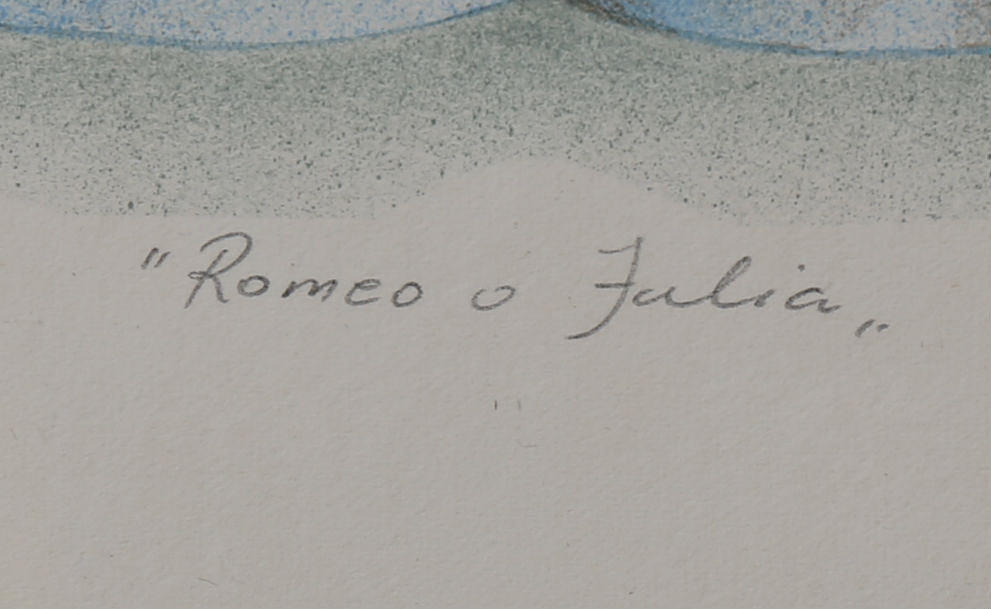 "Romeo o Julia„